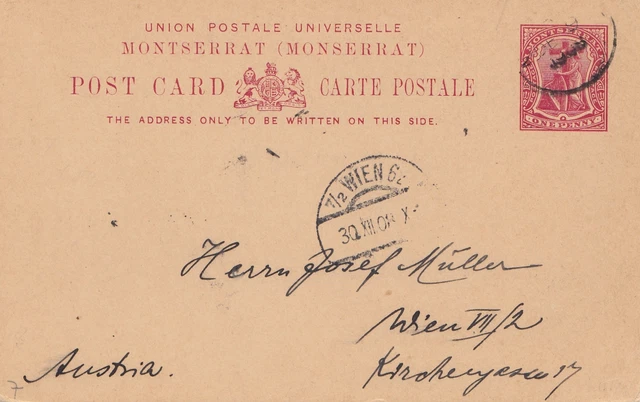 UNION POSTALE UNIVERSELLE
MONTSERRAT (MONSERRAT)
POST CARD CARTE POSTALE
THE ADDRESS ONLY TO BE WRITTEN ON THIS SIDE.
MONTSERRAT
ONE PENNY
7/2 WIEN 62
30 XII 08 X
Herrn Josef Müller
Wien VII/2
Kirchengasse 17
Austria.
7